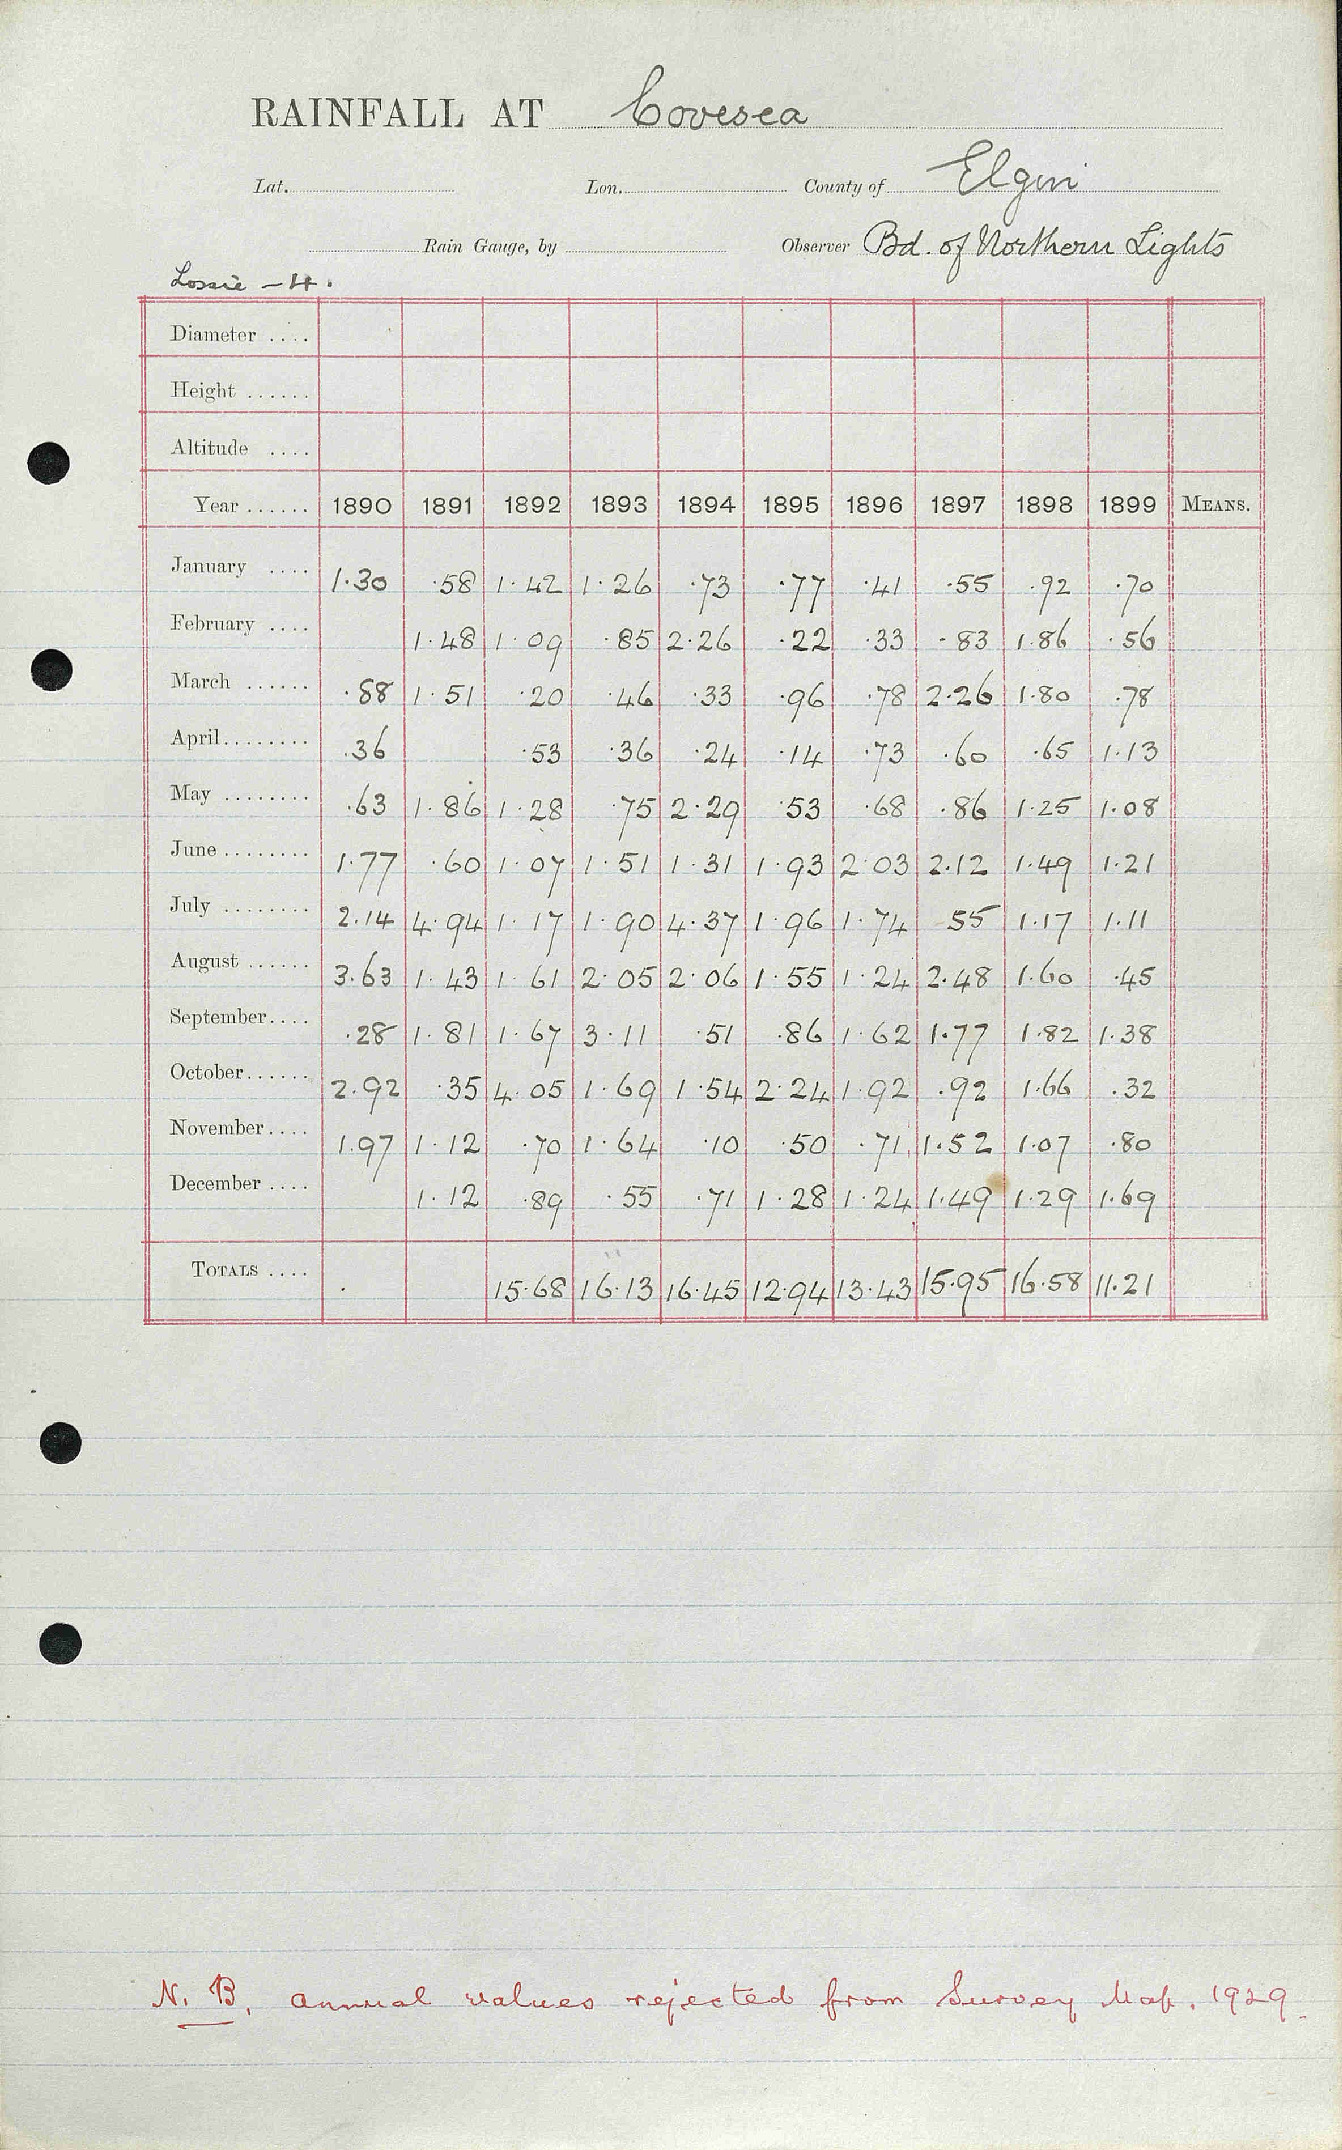 RAINFALL AT Covesea
Lat. Lon. County of Elgin
Rain Gauge, by Observer Bd. of Northern Lights
Lossie - 4.
Diameter ....
Height ......
Altitude ....
Year ...... 1890 1891 1892 1893 1894 1895 1896 1897 1898 1899 MEANS.
January .... 1.30 .58 1.42 1.26 .73 .77 .41 .55 .92 .70
February .... 1.48 1.09 .85 2.26 .22 .33 .83 1.86 .56
March ...... .88 1.51 .20 .46 .33 .96 .78 2.26 1.80 .78
April........ .36 .53 .36 .24 .14 .73 .60 .65 1.13
May ........ .63 1.86 1.28 .75 2.29 .53 .68 .86 1.25 1.08
June ........ 1.77 .60 1.07 1.51 1.31 1.93 2.03 2.12 1.49 1.21
July ........ 2.14 4.94 1.17 1.90 4.37 1.96 1.74 .55 1.17 1.11
August ...... 3.63 1.43 1.61 2.05 2.06 1.55 1.24 2.48 1.60 .45
September.... .28 1.81 1.67 3.11 .51 .86 1.62 1.77 1.82 1.38
October...... 2.92 .35 4.05 1.69 1.54 2.24 1.92 .92 1.66 .32
November.... 1.97 1.12 .70 1.64 .10 .50 .71 1.52 1.07 .80
December .... 1.12 .89 .55 .71 1.28 1.24 1.49 1.29 1.69
TOTALS .... 15.68 16.13 16.45 12.94 13.43 15.95 16.58 11.21
N. B. annual values rejected from Survey Map. 1929.